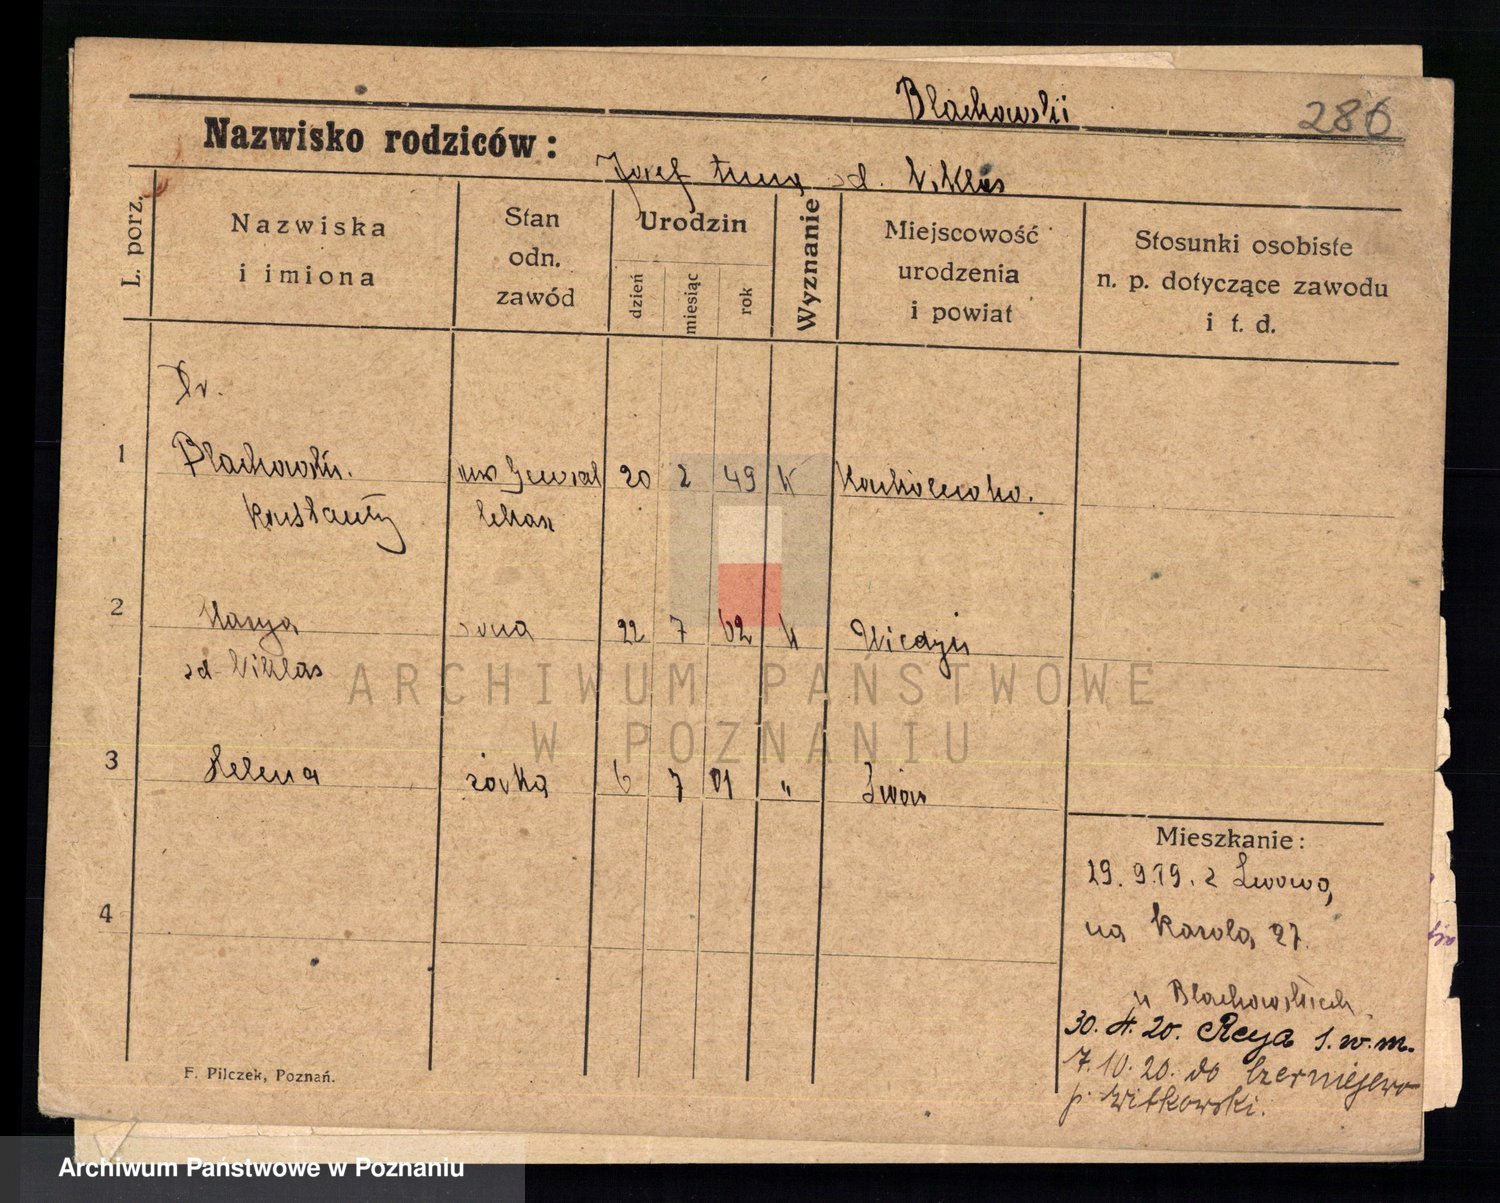 Blachowski
286
Nazwisko rodziców:
Józef Anna od. Niklas
L. porz.
Nazwiska
i imiona
Stan
odn.
zawód
Urodzin
dzień
miesiąc
rok
Wyznanie
Miejscowość
urodzenia
i powiat
Stosunki osobiste
n. p. dotyczące zawodu
i t. d.
Dr.
1 Blachowski. Generał 20 2 49 K
Konstanty lekarz
2 Marya żona 22 7 62 K Wiedyń
od Niklas
3 Helena córka 6 7 01 " Lwów
4
Mieszkanie:
29.9.19. z Lwowa,
na Karola 27.
u Blachowskich
30. 4. 20. Reya 1. w. m.
7.10.20. do Czerniejewo
p. Witkowski.
F. Pilczek, Poznań.
ARCHIWUM PAŃSTWOWE
W POZNANIU
Archiwum Państwowe w Poznaniu